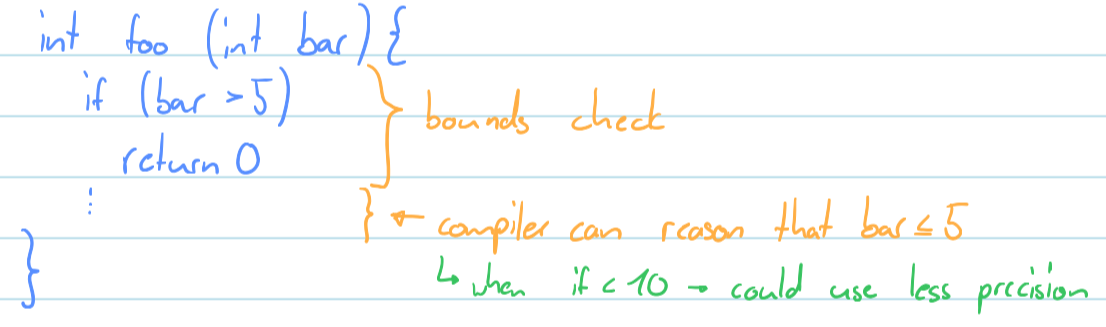 int foo (int bar) {
if (bar > 5) } bounds check
return 0
⋮ } ← compiler can reason that bar ≤ 5
} ↳ when if < 10 → could use less precision